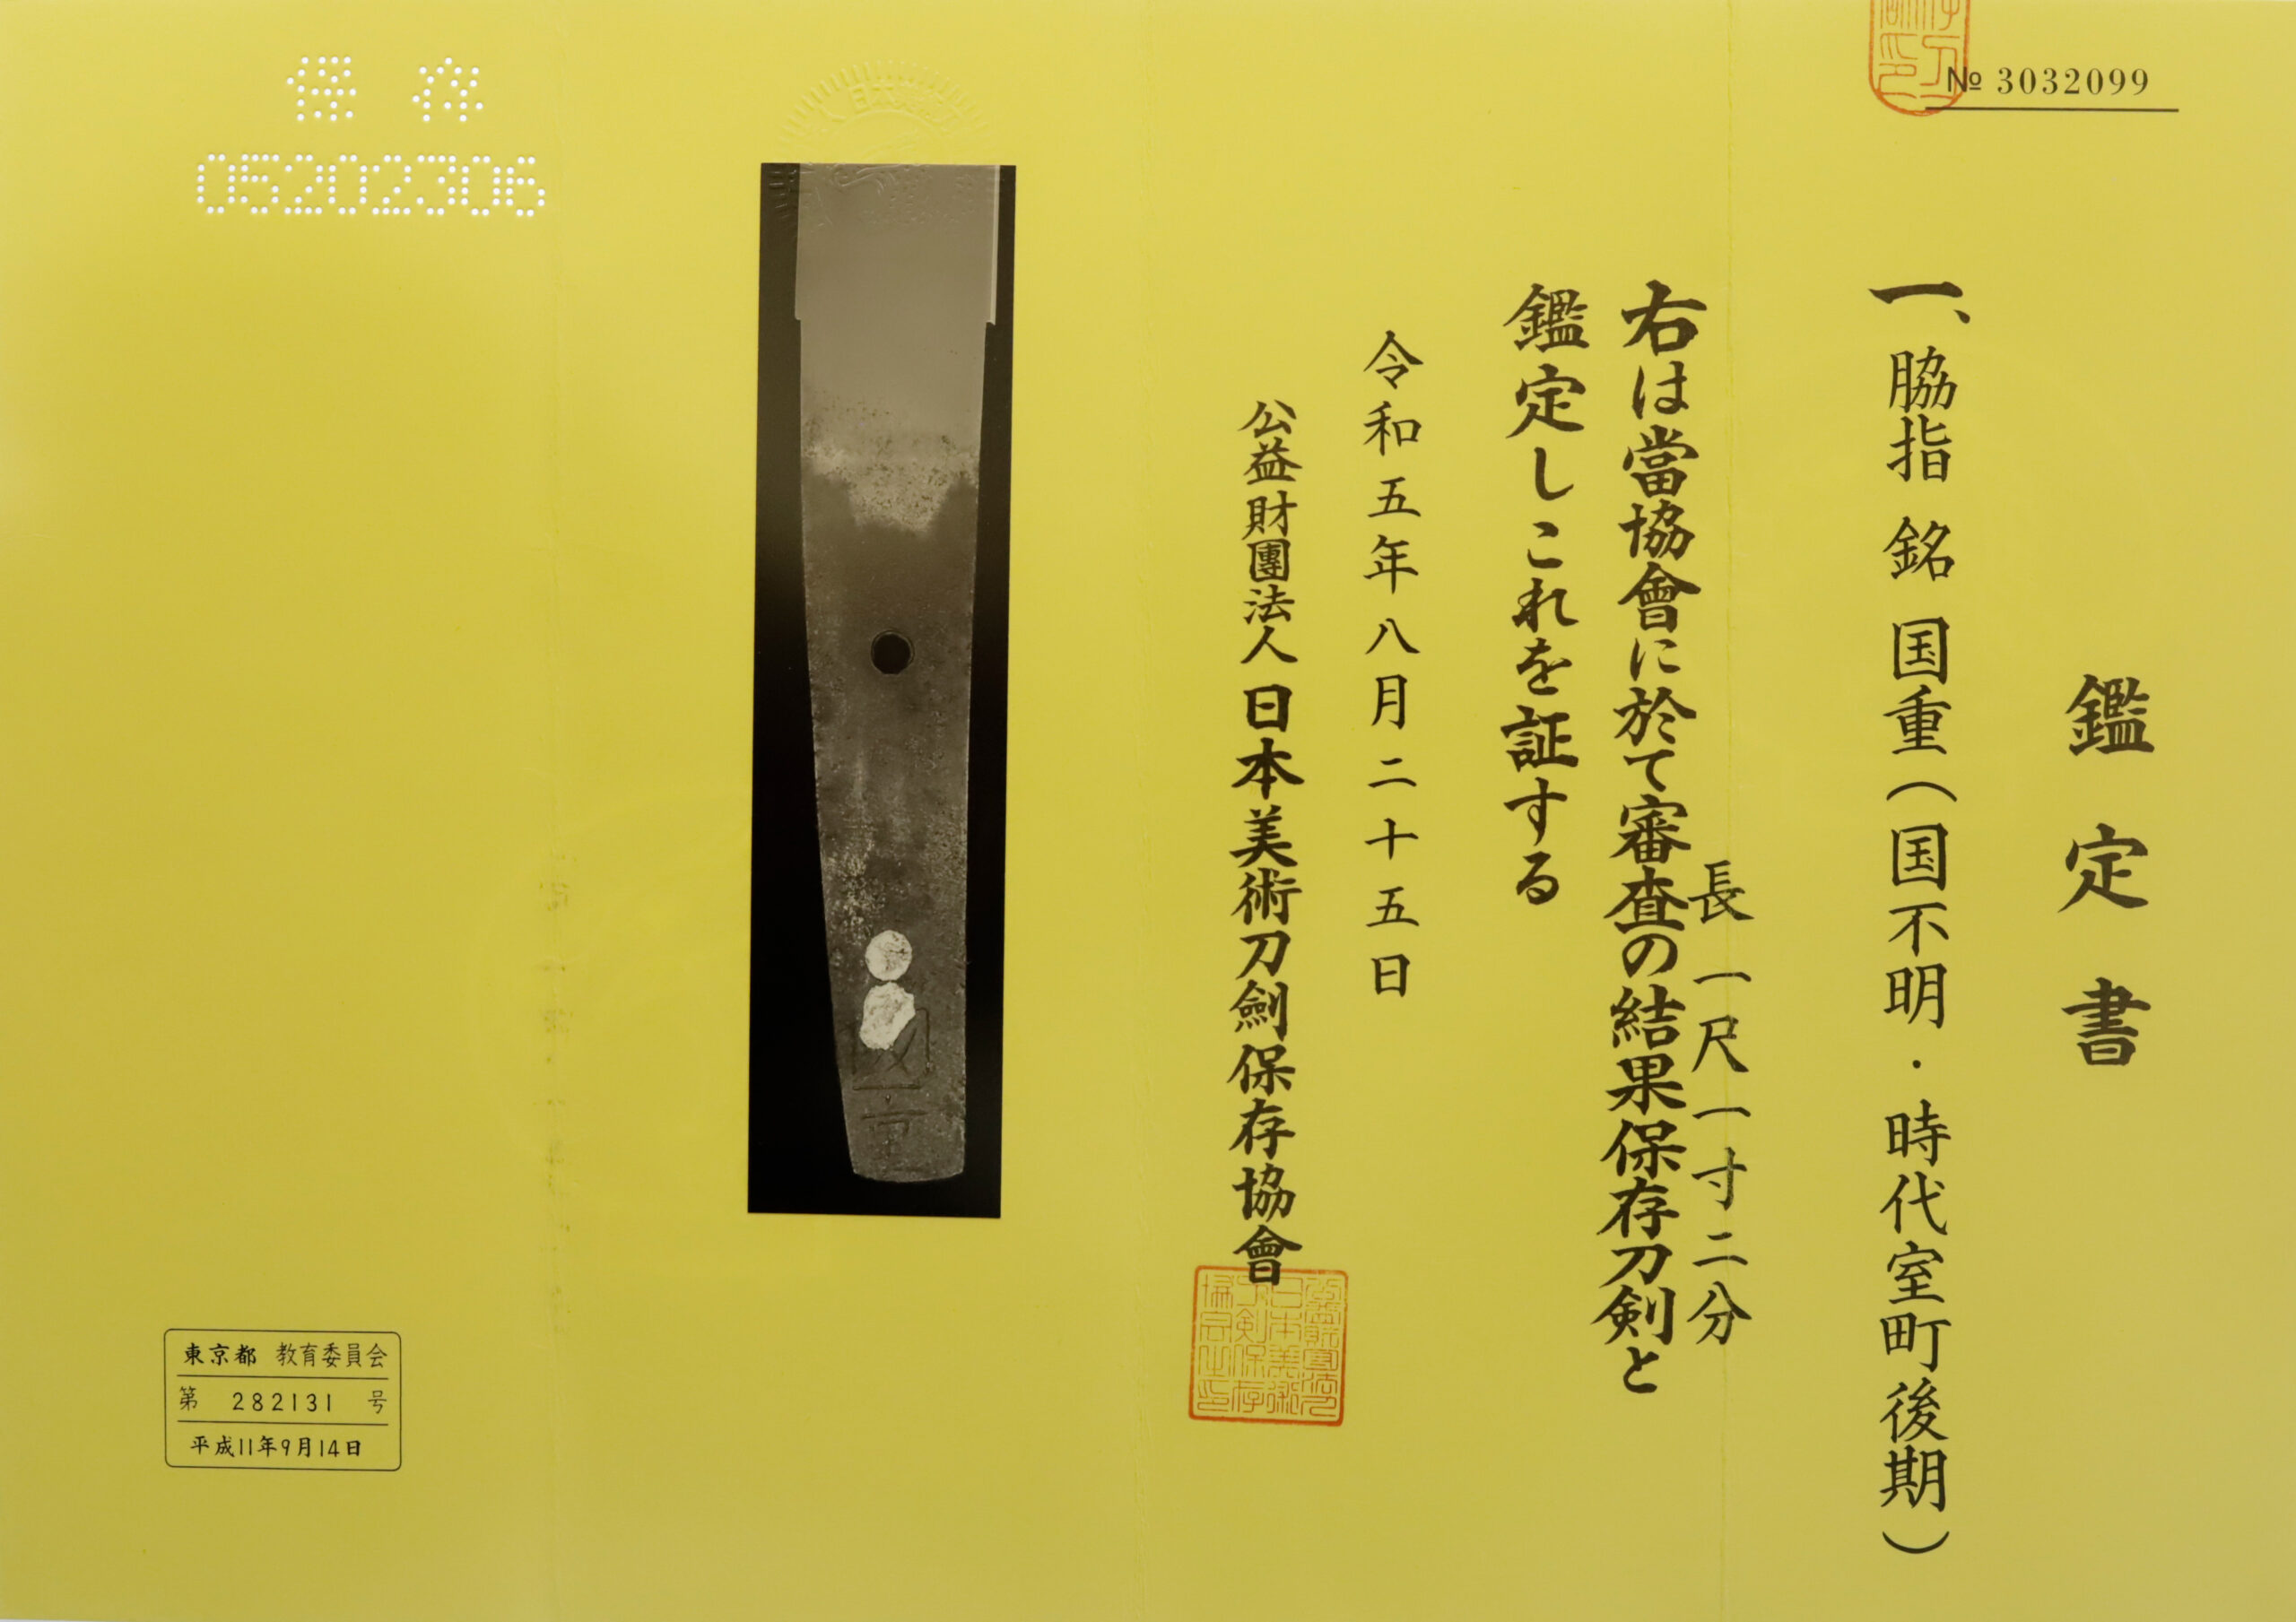 № 3032099
鑑定書
一、脇指 銘 国重（国不明・時代室町後期）
長 一尺一寸二分
右は當協會に於て審査の結果保存刀剣と
鑑定しこれを証する
令和五年八月二十五日
公益財團法人 日本美術刀劍保存協會
保存
05202306
東京都 教育委員会
第 282131 号
平成11年9月14日